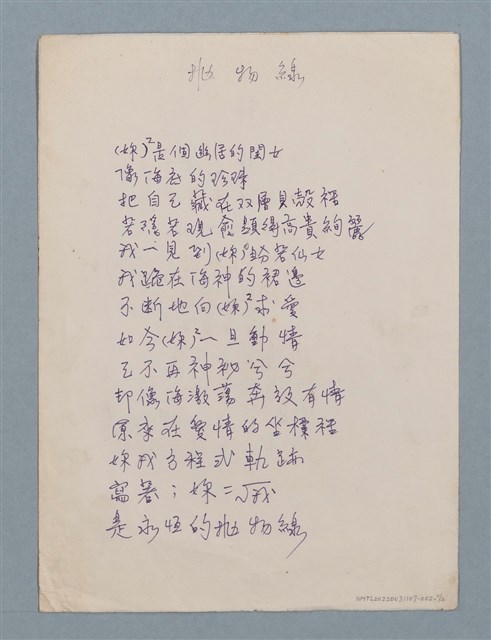 拋物線
(妳)²是個幽居的閨女
像海底的珍珠
把自己藏在双層貝殼裡
若隱若現愈顯得高貴絢麗
我一見到(妳)²貌若仙女
我跪在海神的裙邊
不断地向(妳)²求愛
如今(妳)²一旦動情
已不再神秘兮兮
却像海激蕩奔放有情
原來在愛情的坐標裡
妳我方程式軌跡
寫著；妳=√我
是永恒的拋物線